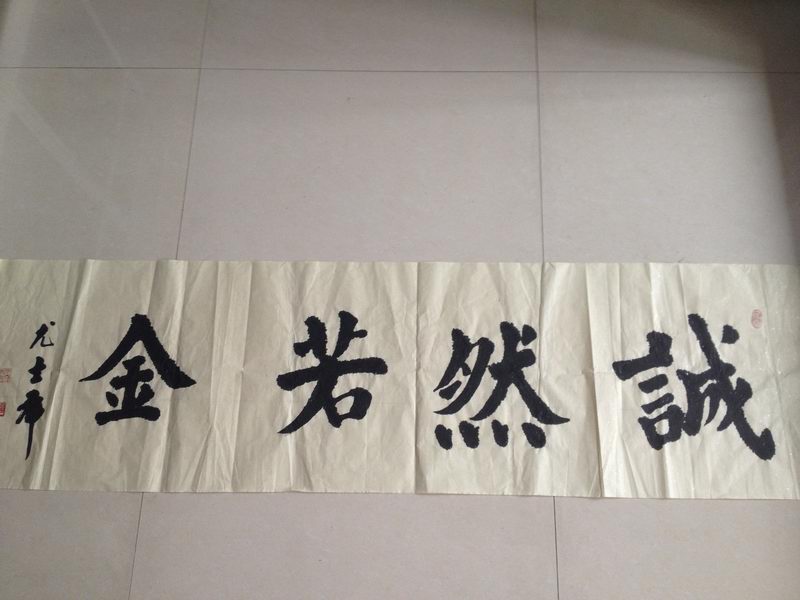 誠然若金
尤士平